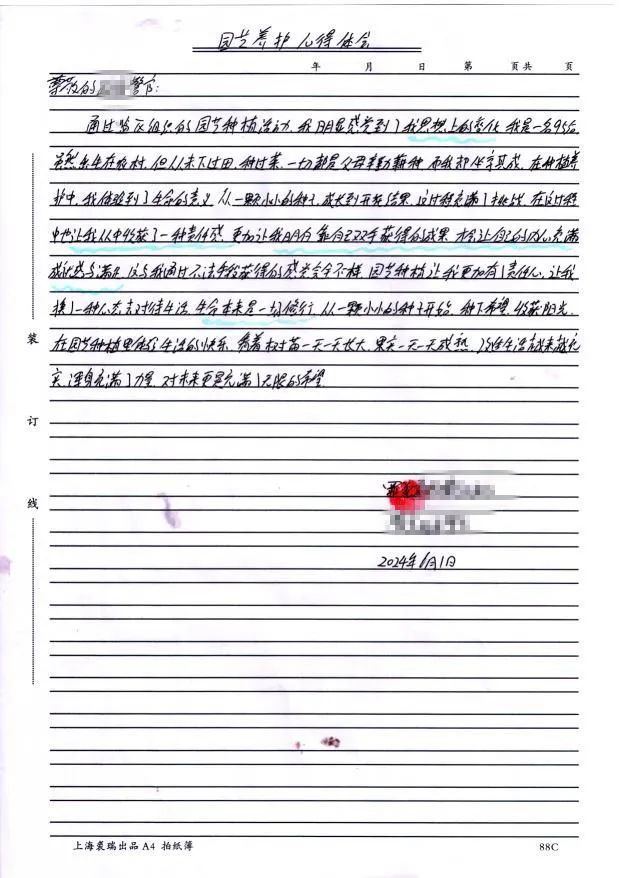 园艺养护心得体会
年 月 日 第 页共 页
尊敬的 警官:
通过监区组织的园艺种植活动,我明显感觉到了我思想上的变化,我是一名95后
虽然出生在农村,但从未下过田,种过菜,一切都是父母辛勤耕种,而我却坐享其成,在种植养
护中,我体验到了生命的意义,从一颗小小的种子,成长到开花结果,这过程充满了挑战,在这过程
中也让我从中收获了一种责任感,更加让我明白,靠自己双手获得的成果,才会让自己的内心充满
成就感与满足,这与我通过不法手段获得的感觉完全不様,园艺种植让我更加有了责任心,让我
换了一种心态去对待生活,生命本来是一场修行,从一颗小小的种子开始,种下希望,收获阳光,
在园艺种植里体会生活的快乐,看着树苗一天一天长大,果实一天一天成熟,
实,浑身充满了力量,对未来更是充满了无限的希望
装
订
线
2024年6月1日
上海裘瑞出品A4 拍纸簿
88C